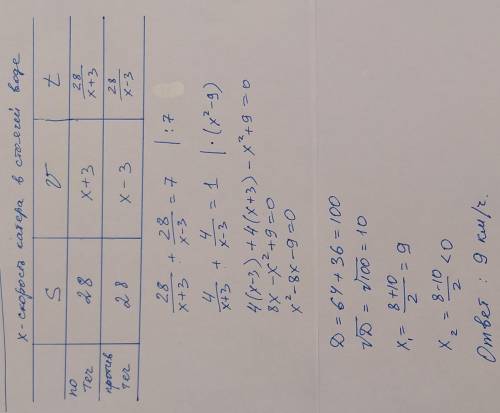 x - скорость катера в стоячей воде
S v t
по теч 28 x+3 28/(x+3)
против теч 28 x-3 28/(x-3)
28/(x+3) + 28/(x-3) = 7 | :7
4/(x+3) + 4/(x-3) = 1 | · (x²-9)
4(x-3) + 4(x+3) - x² + 9 = 0
8x - x² + 9 = 0
x² - 8x - 9 = 0
D = 64 + 36 = 100
√D = √100 = 10
x₁ = (8+10)/2 = 9
x₂ = (8-10)/2 < 0
Ответ: 9 км/ч.